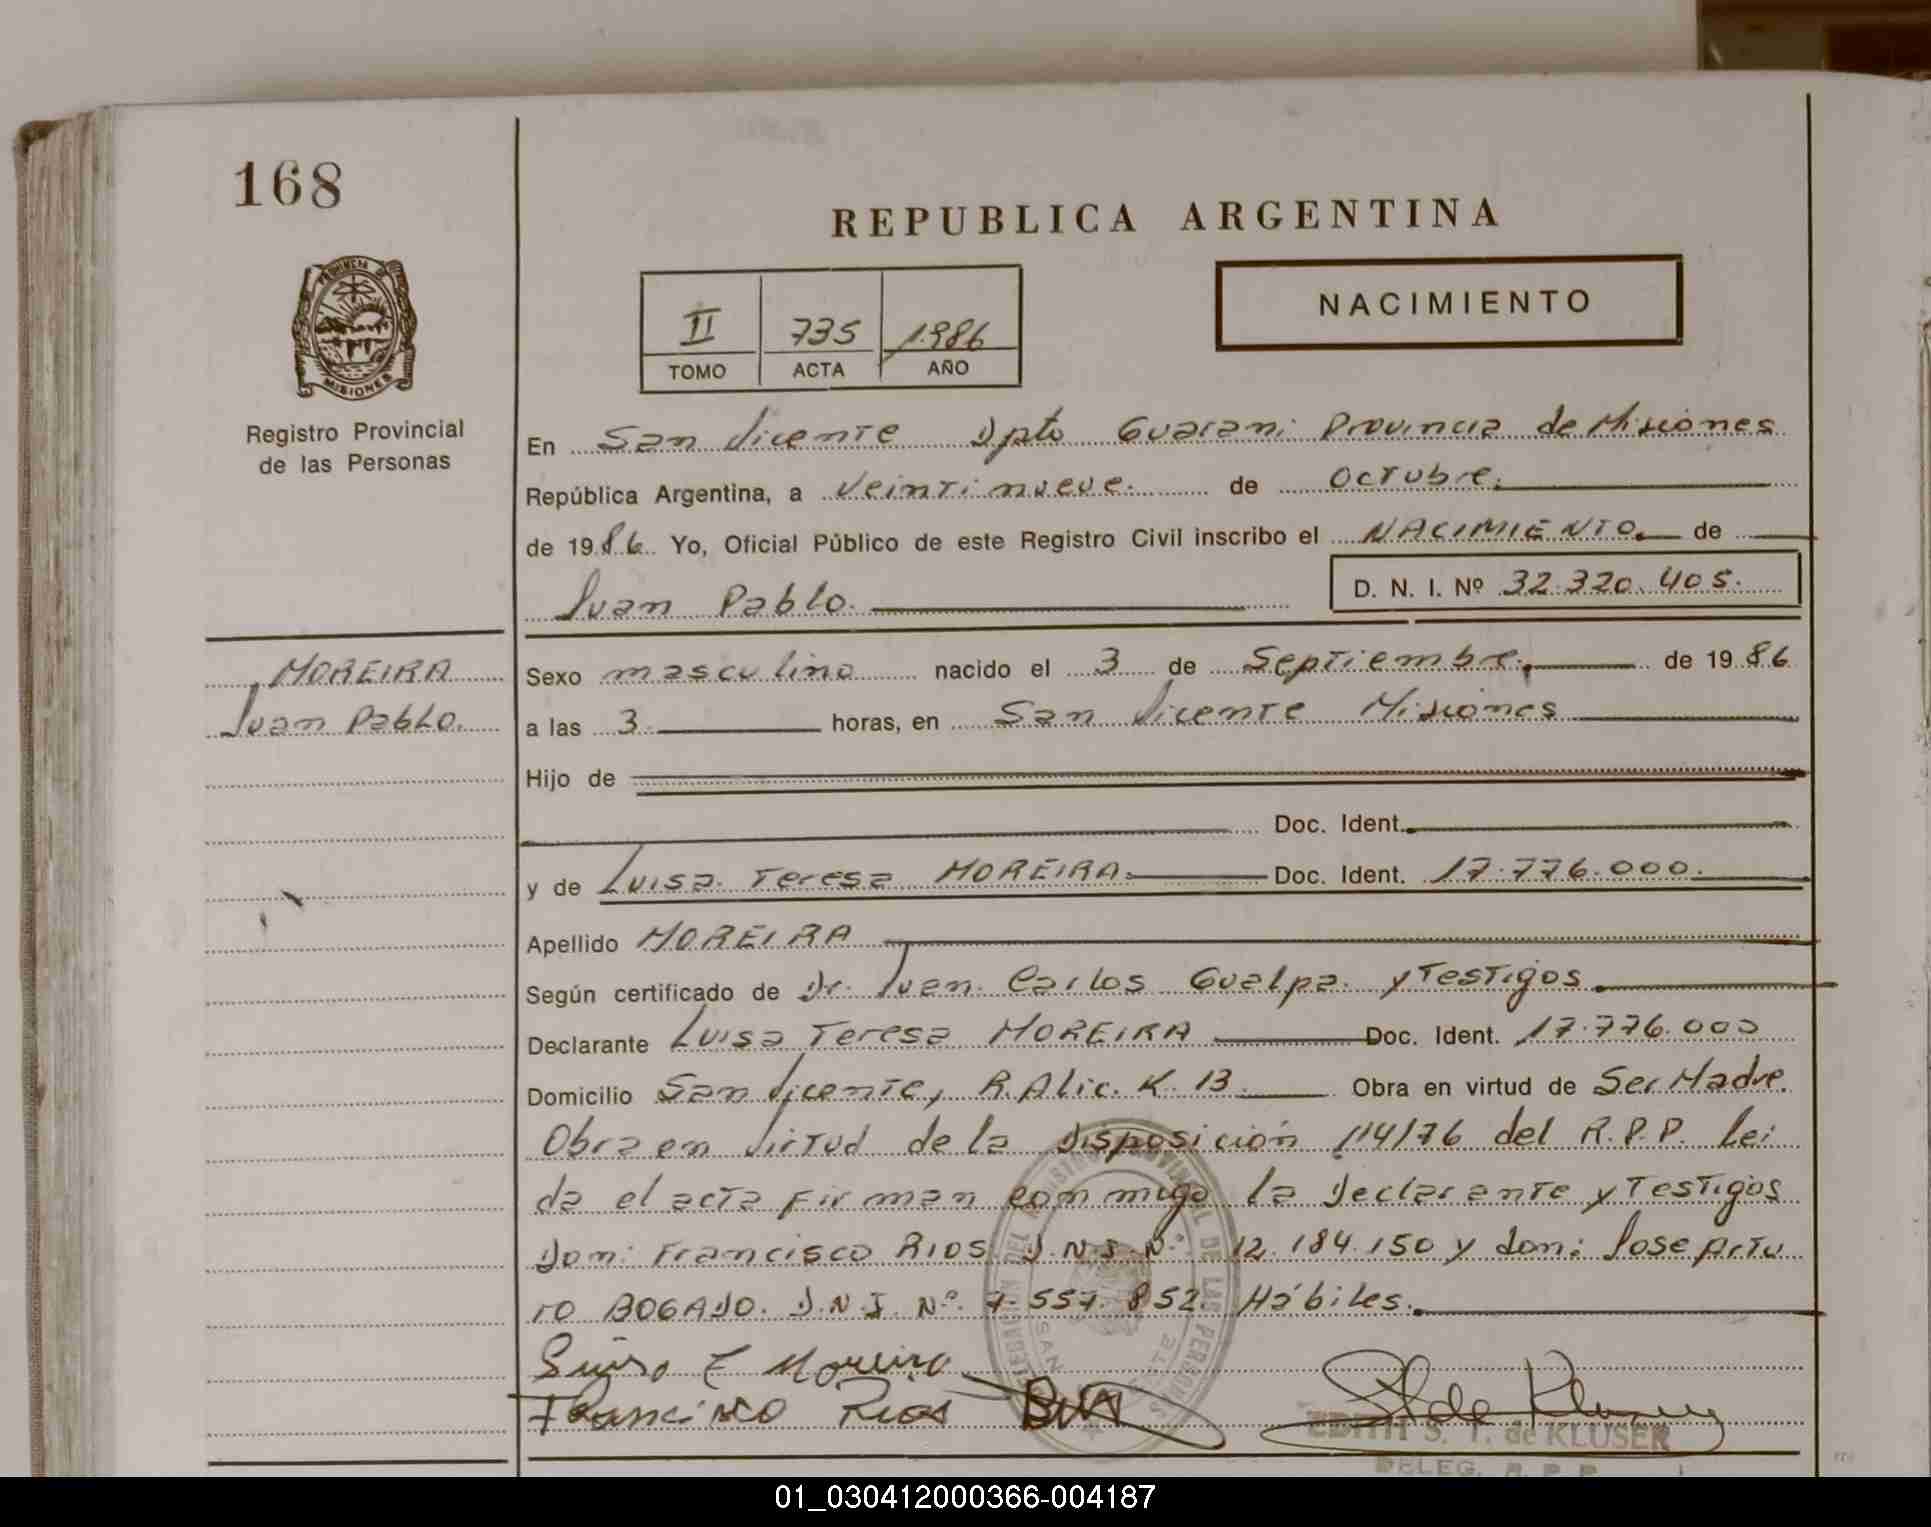 168
REPUBLICA ARGENTINA
PROVINCIA DE
MISIONES
Registro Provincial
de las Personas
II 735 1986
TOMO ACTA AÑO
NACIMIENTO
En San Vicente Dpto Guarani Provincia de Misiones
República Argentina, a Veintinueve. de octubre.
de 1986 Yo, Oficial Público de este Registro Civil inscribo el NACIMIENTO. de
Juan Pablo. D. N. I. Nº 32.320.405.
MOREIRA
Juan Pablo.
Sexo masculino nacido el 3 de Septiembre. de 1986
a las 3 horas, en San Vicente Misiones
Hijo de
Doc. Ident.
y de Luisa Teresa MOREIRA. Doc. Ident. 17.776.000.
Apellido MOREIRA
Según certificado de Dr. Juan Carlos Gualpa. y Testigos
Declarante Luisa Teresa MOREIRA Doc. Ident. 17.776.000
Domicilio San Vicente, R. Alic. K. 13. Obra en virtud de Ser Madre.
Obra en Virtud de la Disposición 114/76 del R.P.P. Lei
da el acta firman conmigo la Declarante y Testigos
Don: Francisco RIOS. D.N.I.Nº. 12.184.150 y don: Jose Artu
ro BOGADO. D.N.I. Nº. 7.557.852. Hábiles.
Luisa T Moreira
Francisco Rios
EDITH S. T. de KLUSER
DELEG. R. P. P.
01_030412000366-004187